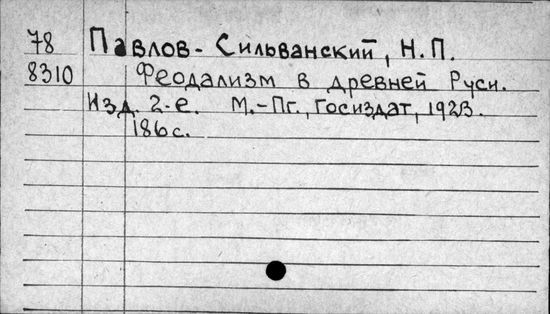 78 Павлов-Сильванский, Н.П.
8310 Феодализм в древней Руси.
Изд. 2-е. М.-Пг., Госиздат, 1923.
186с.